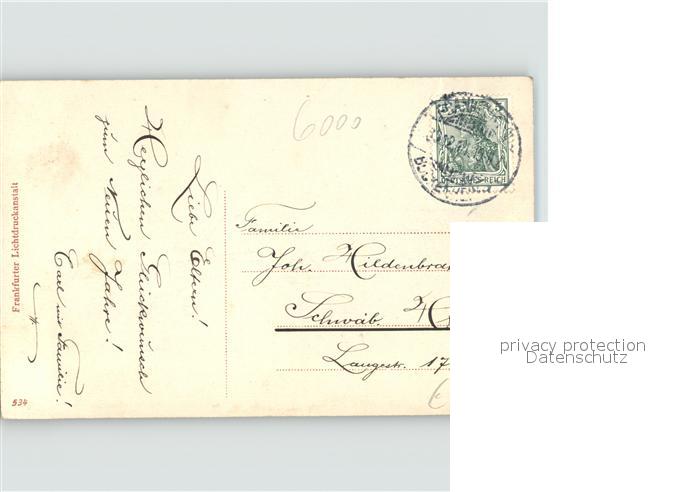 Liebe Eltern!
Herzlichen Glückwunsch
zum Neuen Jahre!
Carl mit Familie!
Frankfurter Lichtdruckanstalt
534
6000
DEUTSCHES REICH
Familie
Joh. Hildenbra
Schwäb.
Langestr. 17
privacy protection
Datenschutz